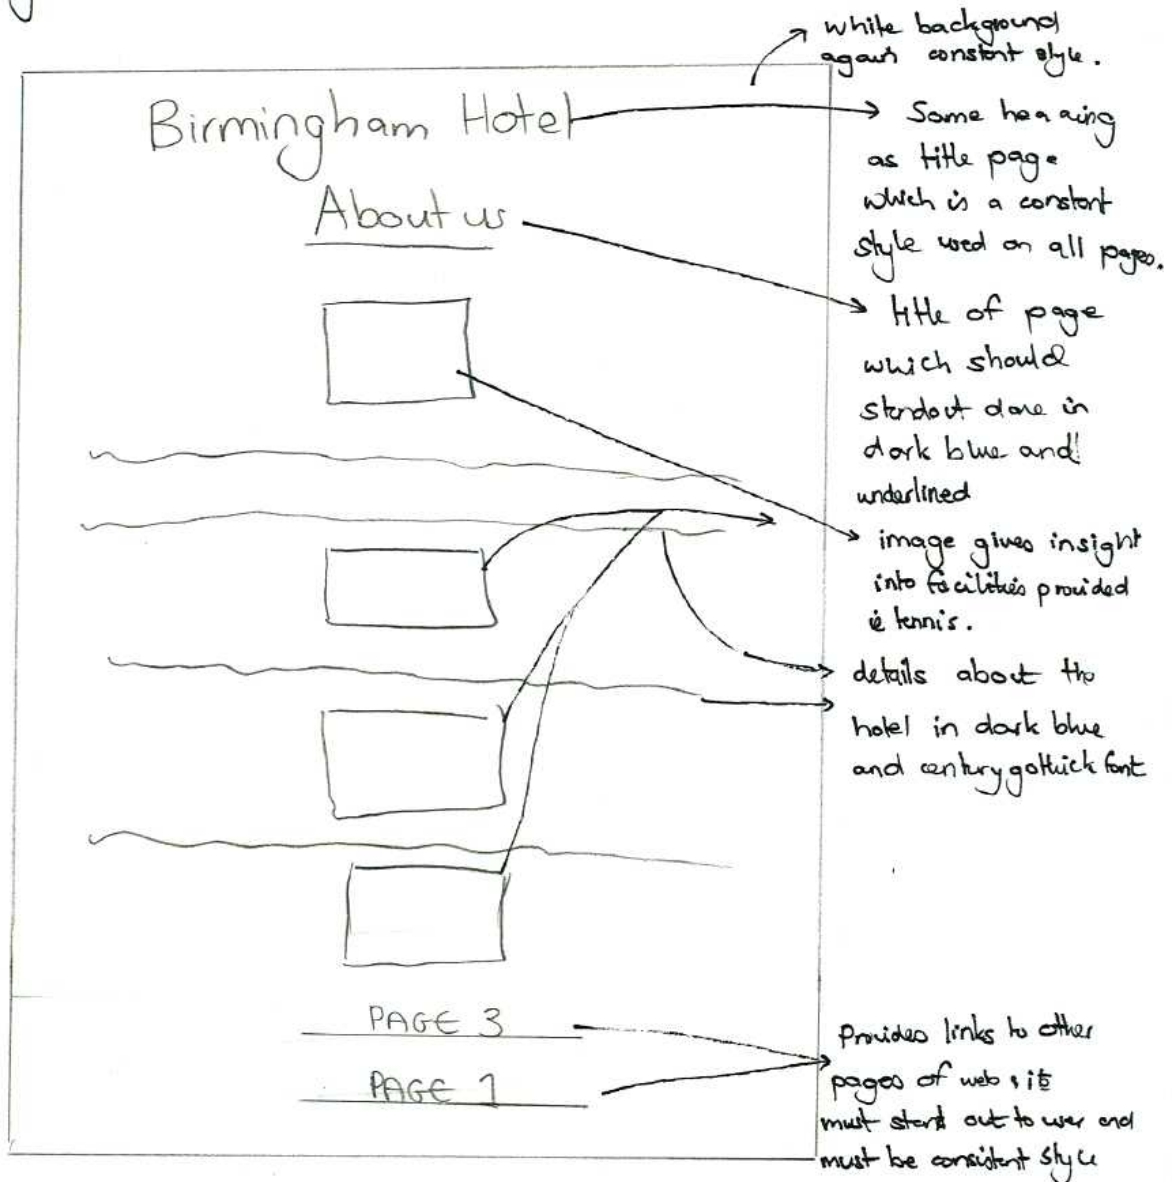 white background
again constant style.
Birmingham Hotel
Same heading
as title page
which is a constant
style used on all pages.
About us
title of page
which should
standout done in
dark blue and
underlined
image gives insight
into facilities provided
ie tennis.
details about the
hotel in dark blue
and century gothick font
PAGE 3
PAGE 1
Provides links to other
pages of web site
must stand out to user and
must be consistent style